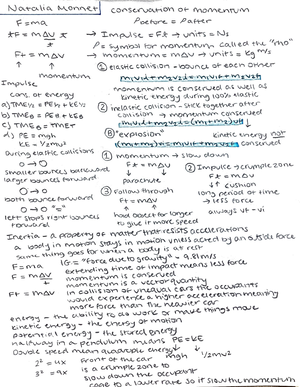 Natalia Monnet conservation of momentum
F=ma Poeture = Patter
*F = m ΔV/t * → Impulse = F·t → units = Ns
P = symbol for momentum called the "rho"
Ft = mΔV → momentum = mΔV → units = kg m/s
① elastic collision - bounce of each other
momentum m₁v₁i+m₂v₂i=m₁v₁f+m₂v₂f
Impulse momentum is conserved as well as
cons. of energy kinetic energy during 100% elastic
a) TMEi = PEi + KEi ② inelastic collision - stick together after
b) TMEf = PEf + KEf collision → momentum conserved
c) TMEi = TMEf m₁v₁i+m₂v₂i=(m₁+m₂)vf
d) PE = mgh ③ "explosion" kinetic energy not
KE = 1/2mv² conserved
During elastic collisions ① momentum → slow down
O → O F·t = mΔV ② Impulse → crumple zone
smaller bounces backward parachute F·t = mΔV
larger bounces forward ③ Follow through cushion
O → O Ft = mΔV long period of time
both bounce forward → less force
O → O "=" hold object for longer always vf - vi
left stops right bounces forward to give it more speed
Inertia - a property of matter that resists accelerations
a body in motion stays in motion unless acted by an outside force
same thing goes for when a body is at rest
F=ma "Force due to gravity" = 9.81 m/s
F = m ΔV/t extending time of impact means less force
momentum is conserved
Ft = mΔV momentum is a vector quantity
in collision of unequal cars the occupants
would experience a higher acceleration meaning
more force than the heavier car
energy - the ability to do work or make things move
kinetic energy - the energy of motion
potential energy - the stored energy
halfway in a pendulum means PE = KE
Double speed mean quadruple energy mgh 1/2mv²
2² = 4x Front of the car
3² = 9x is a crumple zone to
slow down the occupant
come to a lower rate so it slow the momentum